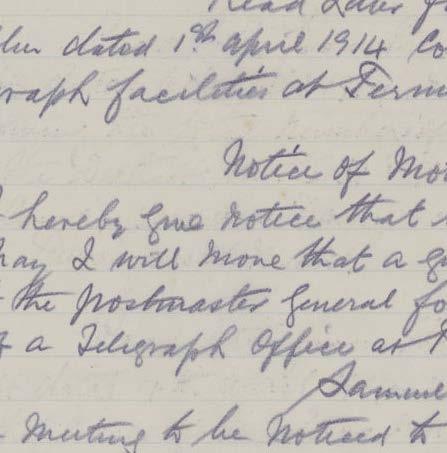 Read Letter f
dated 1st April 1914 Co
raph facilities at Ferm
Notice of Mo
I hereby give notice that
May I will move that a
the Postmaster General fo
of a Telegraph Office at
Samuel
Meeting to be Noticed to